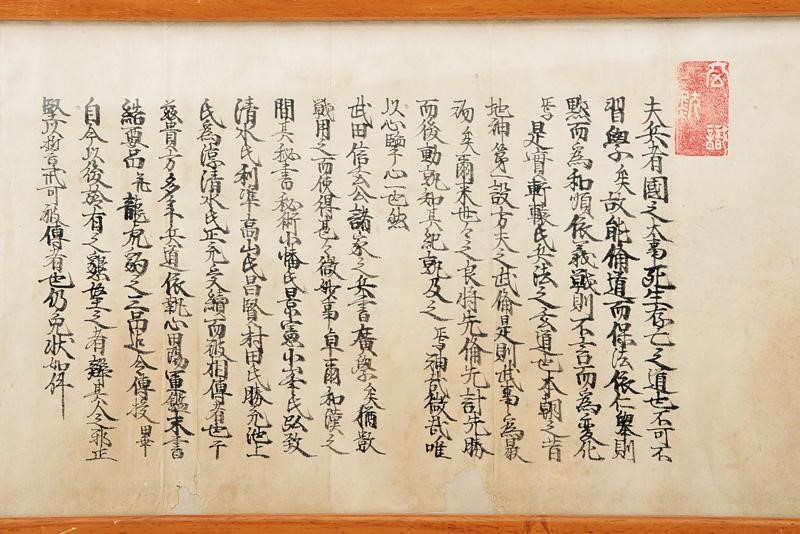 夫兵者國之大事死生存亡之道也不可不
習學矣故能脩道而保法依仁舉則
黙而為和順依義戰則不言而為変化
焉是實軒轅氏兵法之玄道也本朝之昔
地神第一設方夫之武備是則武事為最
矣爾来世々之良將先備先計先勝
而後動孰知其紀孰及之焉神哉微哉唯
以心擊心一也然
武田信玄公諸家之兵書廣學矣猶數
戰用之而使得甚々微妙焉卓爾和漢之
間其秘書秘術小幡氏景憲小峯氏弘致
清水氏利準高山氏昌賢村田氏勝允池上
氏為清水氏正允交續而被相傳者也于
茲貴方多年兵道依執心甲陽軍鑑末書
結要品龍虎豹之三品迄令傳授畢
自今以後於有之懇望之者擇其人之邪正
堅以誓言戒可被傳者也仍免状如件